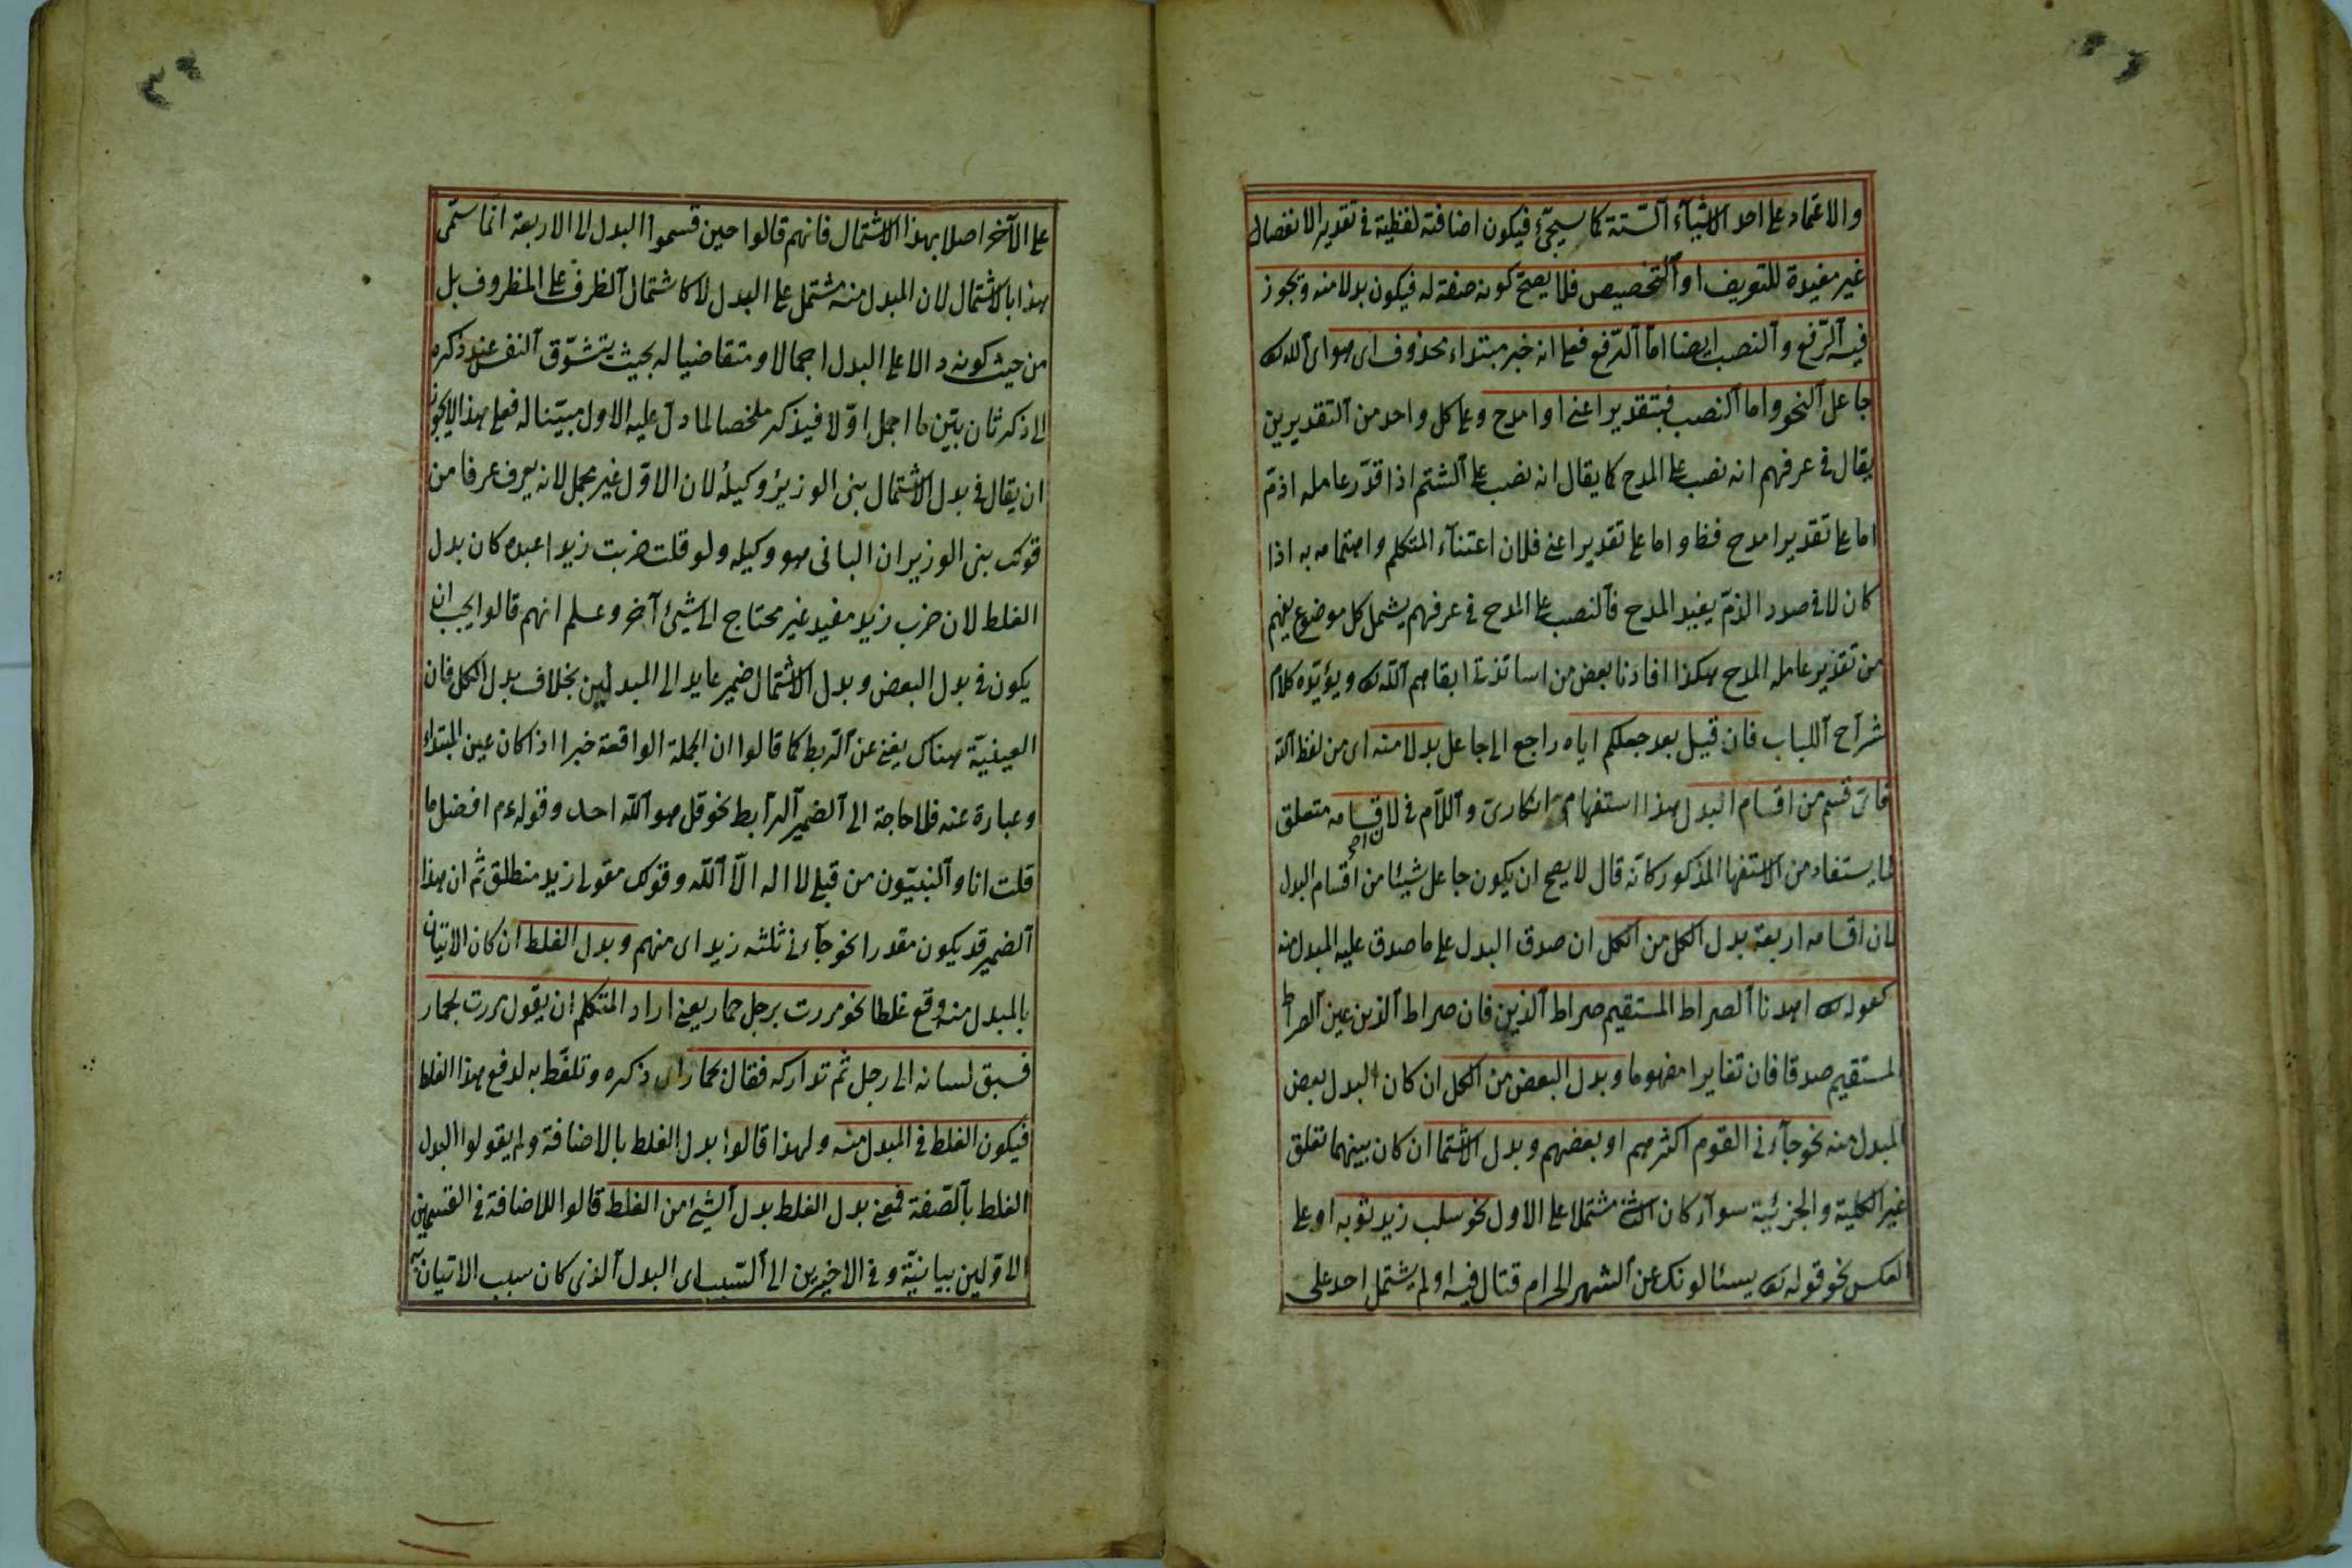 والاعتماد على احد الاشيآء الستة كما سيجئ فيكون اضافته لفظية فى تقدير الانفصال
غير مفيدة للتعريف او التخصيص فلا يصح كونه صفة له فيكون بدلا منه ويجوز
فيه الرفع والنصب ايضا اما الرفع فعلى انه خبر مبتداء محذوف اى هو اى الله تعالى
جاعل النحو واما النصب فبتقدير اعنى او امدح وعلى كل واحد من التقديرين
يقال فى عرفهم انه نصب على المدح كما يقال انه نصب على الشتم اذا قدر عامله اذم
اما على تقدير امدح فظ واما على تقدير اعنى فلان اعتنآء المتكلم واهتمامه به اذا
كان لا فى صدد الذم يفيد المدح فالنصب على المدح فى عرفهم يشمل كل موضوع يفهم
من تقدير عامله المدح هكذا افادنا بعض من اساتذتنا ابقاهم الله تعالى ويؤيده كلام
شراح اللباب فان قيل بعد جعلكم اياه راجع الى جاعل بدلا منه اى من لفظ الله
فاى قسم من اقسام البدل هذا استفهام انكارى واللام فى لاقسامه متعلق
لما يستفاد من الاستفهام المذكور كانه قال لا يصح ان يكون جاعل شيئا من اقسام البدل
لان اقسامه اربعة بدل الكل من الكل ان صدق البدل على ما صدق عليه المبدل منه
كقوله تعالى اهدنا الصراط المستقيم صراط الذين فان صراط الذين عين الصراط
المستقيم صدقا فان تغايرا مفهوما وبدل البعض من الكل ان كان البدل بعض
المبدل منه نحو جآءنى القوم اكثرهم او بعضهم وبدل الاشتما ان كان بينهما تعلق
غير الكلية والجزئية سوآء كان الثانى مشتملا على الاول نحو سلب زيد ثوبه او على
العكس نحو قوله تعالى يسئالونك عن الشهر الحرام قتال فيه او لم يشتمل احد على
على الآخر اصلا بهذا الاشتمال فانهم قالوا حين قسموا البدل الى الاربعة انما سمى
هذا بالاشتمال لان المبدل منه مشتمل على البدل لا كاشتمال الظرف على المظروف بل
من حيث كونه دالا على البدل اجمالا ومتقاضيا له بحيث يتشوق النفس عند ذكره
الى ذكر ثان يبين ما اجمل اولا فيذكر ملخصا لما دل عليه الاول مبينا له فعلى هذا لا يجوز
ان يقال فى بدل الاشتمال بنى الوزير وكيله لان الاول غير مجمل لانه يعرف عرفا من
قولك بنى الوزير ان البانى هو وكيله ولو قلت ضربت زيدا عبده كان بدل
الغلط لان ضرب زيد مفيد غير محتاج الى شيئ آخر وعلم انهم قالوا يجب ان
يكون فى بدل البعض وبدل الاشتمال ضمير عايد الى المبدل بخلاف بدل الكل فان
العينية هناك يغنى عن الربط كما قالوا ان الجملة الواقعة خبرا اذا كان عين المبتداء
وعبارة عنه فلا حاجة الى الضمير الرابط نحو قل هو الله احد وقوله عم افضل ما
قلت انا والنبيون من قبلى لا اله الا الله وقولك مقولى زيد منطلق ثم ان هذا
الضمير قد يكون مقدرا نحو جآءنى ثلثه زيد اى منهم وبدل الغلط ان كان الاتيان
بالمبدل منه وقع غلطا نحو مررت برجل حمار يعنى اراد المتكلم ان يقول مررت بحمار
فسبق لسانه الى رجل ثم تداركه فقال بحمار اى ذكره وتلفظ به لدفع هذا الغلط
فيكون الغلط فى المبدل منه ولهذا قالوا بدل الغلط بالاضافة ولم يقولوا البدل
الغلط بالصفة فمعنى بدل الغلط بدل الشيئ من الغلط قالوا للاضافة فى القسمين
الاولين بيانية وفى الاخيرين الى السبب اى البدل الذى كان سبب الاتيان به